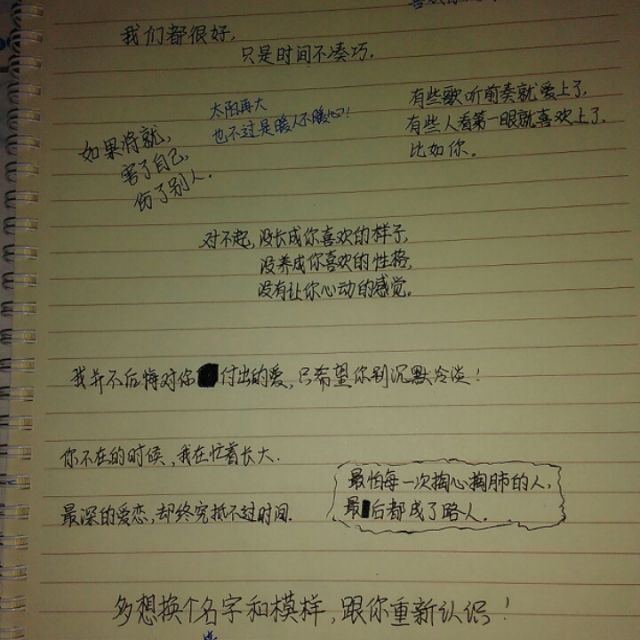 我们都很好,
只是时间不凑巧,
太阳再大
也不过是暖人不暖心!
有些歌听前奏就爱上了,
有些人看第一眼就喜欢上了,
比如你。
如果将就,
害了自己,
伤了别人.
对不起,没长成你喜欢的样子,
没养成你喜欢的性格,
没有让你心动的感觉。
我并不后悔对你付出的爱,只希望你别沉默冷淡!
你不在的时候,我在忙着长大.
最深的爱恋,却终究抵不过时间.
最怕每一次掏心掏肺的人,
最后都成了路人.
多想换个名字和模样,跟你重新认识!